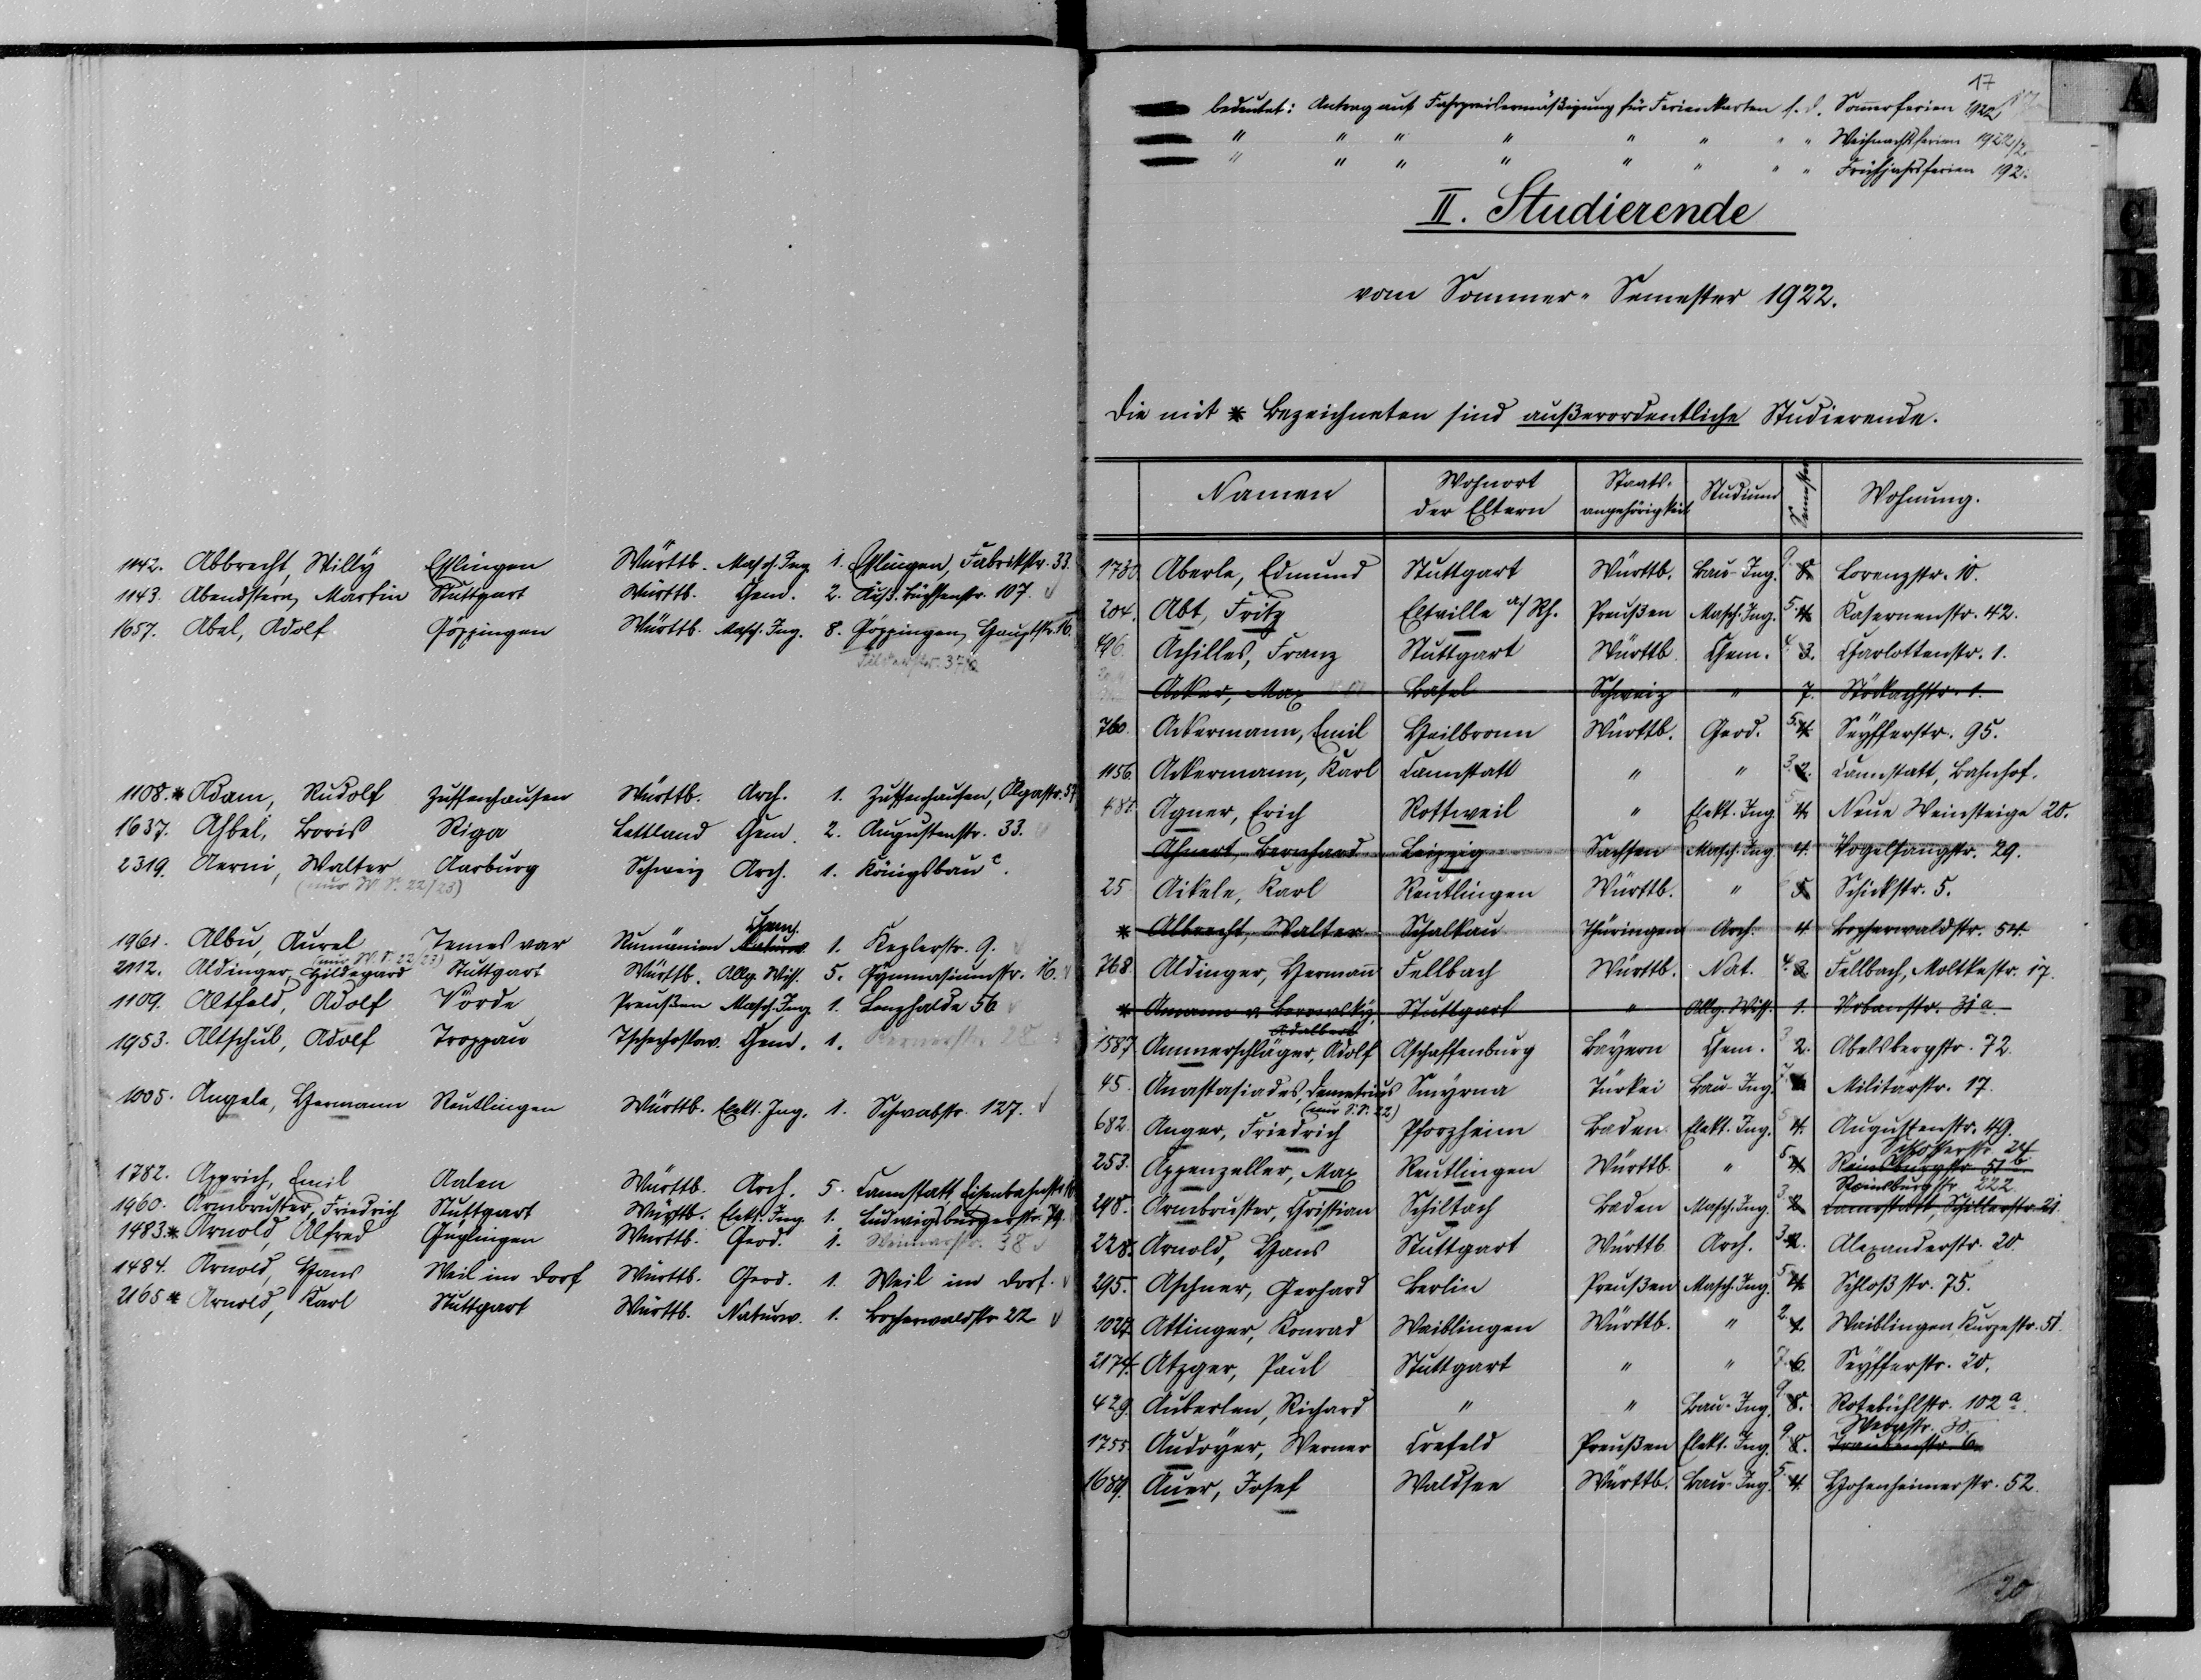 1142. Abbrecht, Willy Eßlingen Württb. Masch. Ing. 1. Eßlingen, Fabrikstr. 33.
1143. Abendstern, Martin Stuttgart Württb. Chem. 2. Äuß. Büchsenstr. 107. √
1657. Abel, Adolf Göppingen Württb. Masch. Ing. 8. Göppingen, Hauptstr. 16.
1108. * Adam, Rudolf Zuffenhausen Württb. Arch. 1. Zuffenhausen, Olgastr. 57
1637. Ahbel, Boris Riga Lettland Chem. 2. Augustenstr. 33. √
2319. Aerni, Walter Aarburg Schweiz Arch. 1. Königsbau c.
(nur W. S. 22/23)
Chem.
1961. Albu, Aurel Temesvar Rumänien Naturw. 1. Keplerstr. 9. √
(nur W. S. 22/23)
2112. Aldinger, Hildegard Stuttgart Württb. Allg. Wiss. 5. Gymnasiumstr. 16. √
1109. Altfeld, Adolf Vörde Preußen Masch. Ing. 1. Lenzhalde 56 √
1953. Altschul, Adolf Troppau Tschechoslow. Chem. 1. Kernerstr. 28
1005. Angele, Hermann Reutlingen Württb. Elekt. Ing. 1. Schwabstr. 127. √
1782. Apprich, Emil Aalen Württb. Arch. 5. Cannstatt, Eisenbahnstr.
1960. Armbruster, Friedrich Stuttgart Württb. Elekt. Ing. 1. Ludwigsburgerstr. 79.
1483. * Arnold, Alfred Güglingen Württb. Geod. 1. Weimarstr. 38 √
1484. Arnold, Hans Weil im Dorf Württb. Geod. 1. Weil im Dorf. √
2165 * Arnold, Karl Stuttgart Württb. Naturw. 1. Bopserwaldstr 22 √
17
bedeutet: Antrag auf Fahrpreisermäßigung für Ferienkarten f. d. Sommerferien 1922
" " " " " " " " Weihnachtsferien 1922/2
" " " " " " " " Frühjahrsferien 192.
II. Studierende
vom Sommer-Semester 1922.
Die mit * Bezeichneten sind außerordentliche Studierende.
Namen Wohnort der Eltern Staats-angehörigkeit Studium Semester Wohnung.
1730 Aberle, Edmund Stuttgart Württb. Bau-Ing. 9. 8. Lorenzstr. 10.
204. Abt, Fritz Eltville a/Rh. Preußen Masch. Ing. 5. 4. Kasernenstr. 42.
496. Achilles, Franz Stuttgart Württb. Chem. 4. 3. Charlottenstr. 1.
Acker, Max Basel Schweiz " 7. Stöckachstr. 1.
760. Ackermann, Emil Heilbronn Württb. Geod. 5. 4. Seyfferstr. 95.
1156. Ackermann, Karl Cannstatt " " 3. 2. Cannstatt, Bahnhof.
481. Agner, Erich Rottweil " Elekt. Ing. 5. 4. Neue Weinsteige 20.
Ahnert, Bernhard Leipzig Sachsen Masch. Ing. 4. Vogelsangstr. 29.
25 Aikele, Karl Reutlingen Württb. " 6 5 Schickstr. 5.
* Albrecht, Walter Schalkau Thüringen Arch. 4. Bopserwaldstr. 54.
768 Aldinger, Hermann Fellbach Württb. Nat. 4. 3. Fellbach, Moltkestr. 17.
* Amann v. Borowsky, Stuttgart " Allg. Wiss. 1. Urbanstr. 31 a.
Adalbert
1587 Ammerschläger, Adolf Aschaffenburg Bayern Chem. 3 2. Abelsbergstr. 72.
45. Anastasiades, Demetrius Smyrna Türkei Bau-Ing. 7. Militärstr. 17.
(nur S. S. 22)
682. Anger, Friedrich Pforzheim Baden Elekt. Ing. 5. 4. Augustenstr. 49.
Schlosserstr. 24
253. Appenzeller, Max Reutlingen Württb. " 5. 4. Reinsburgstr. 51 b
Reinsburgstr. 222.
298. Armbruster, Christian Schiltach Baden Masch. Ing. 3. 2. Cannstatt, Schillerstr. 21.
228. Arnold, Hans Stuttgart Württb. Arch. 3. 2. Alexanderstr. 20.
295. Aschner, Gerhard Berlin Preußen Masch. Ing. 5. 4. Schloßstr. 75.
1024. Attinger, Konrad Waiblingen Württb. " 2. 1. Waiblingen, Kurzestr. 51.
2174. Atzger, Paul Stuttgart " " 7. 6. Seyfferstr. 20.
429. Auberlen, Richard " " Bau-Ing. 9. 8. Rotebühlstr. 102 a.
Wergstr. 30.
1755. Audoyer, Werner Crefeld Preußen Elekt. Ing. 9. 8. Traubenstr. 6.
1689. Auer, Josef Waldsee Württb. Bau-Ing. 5. 4. Hohenheimerstr. 52.
30
A
C
D
E
F